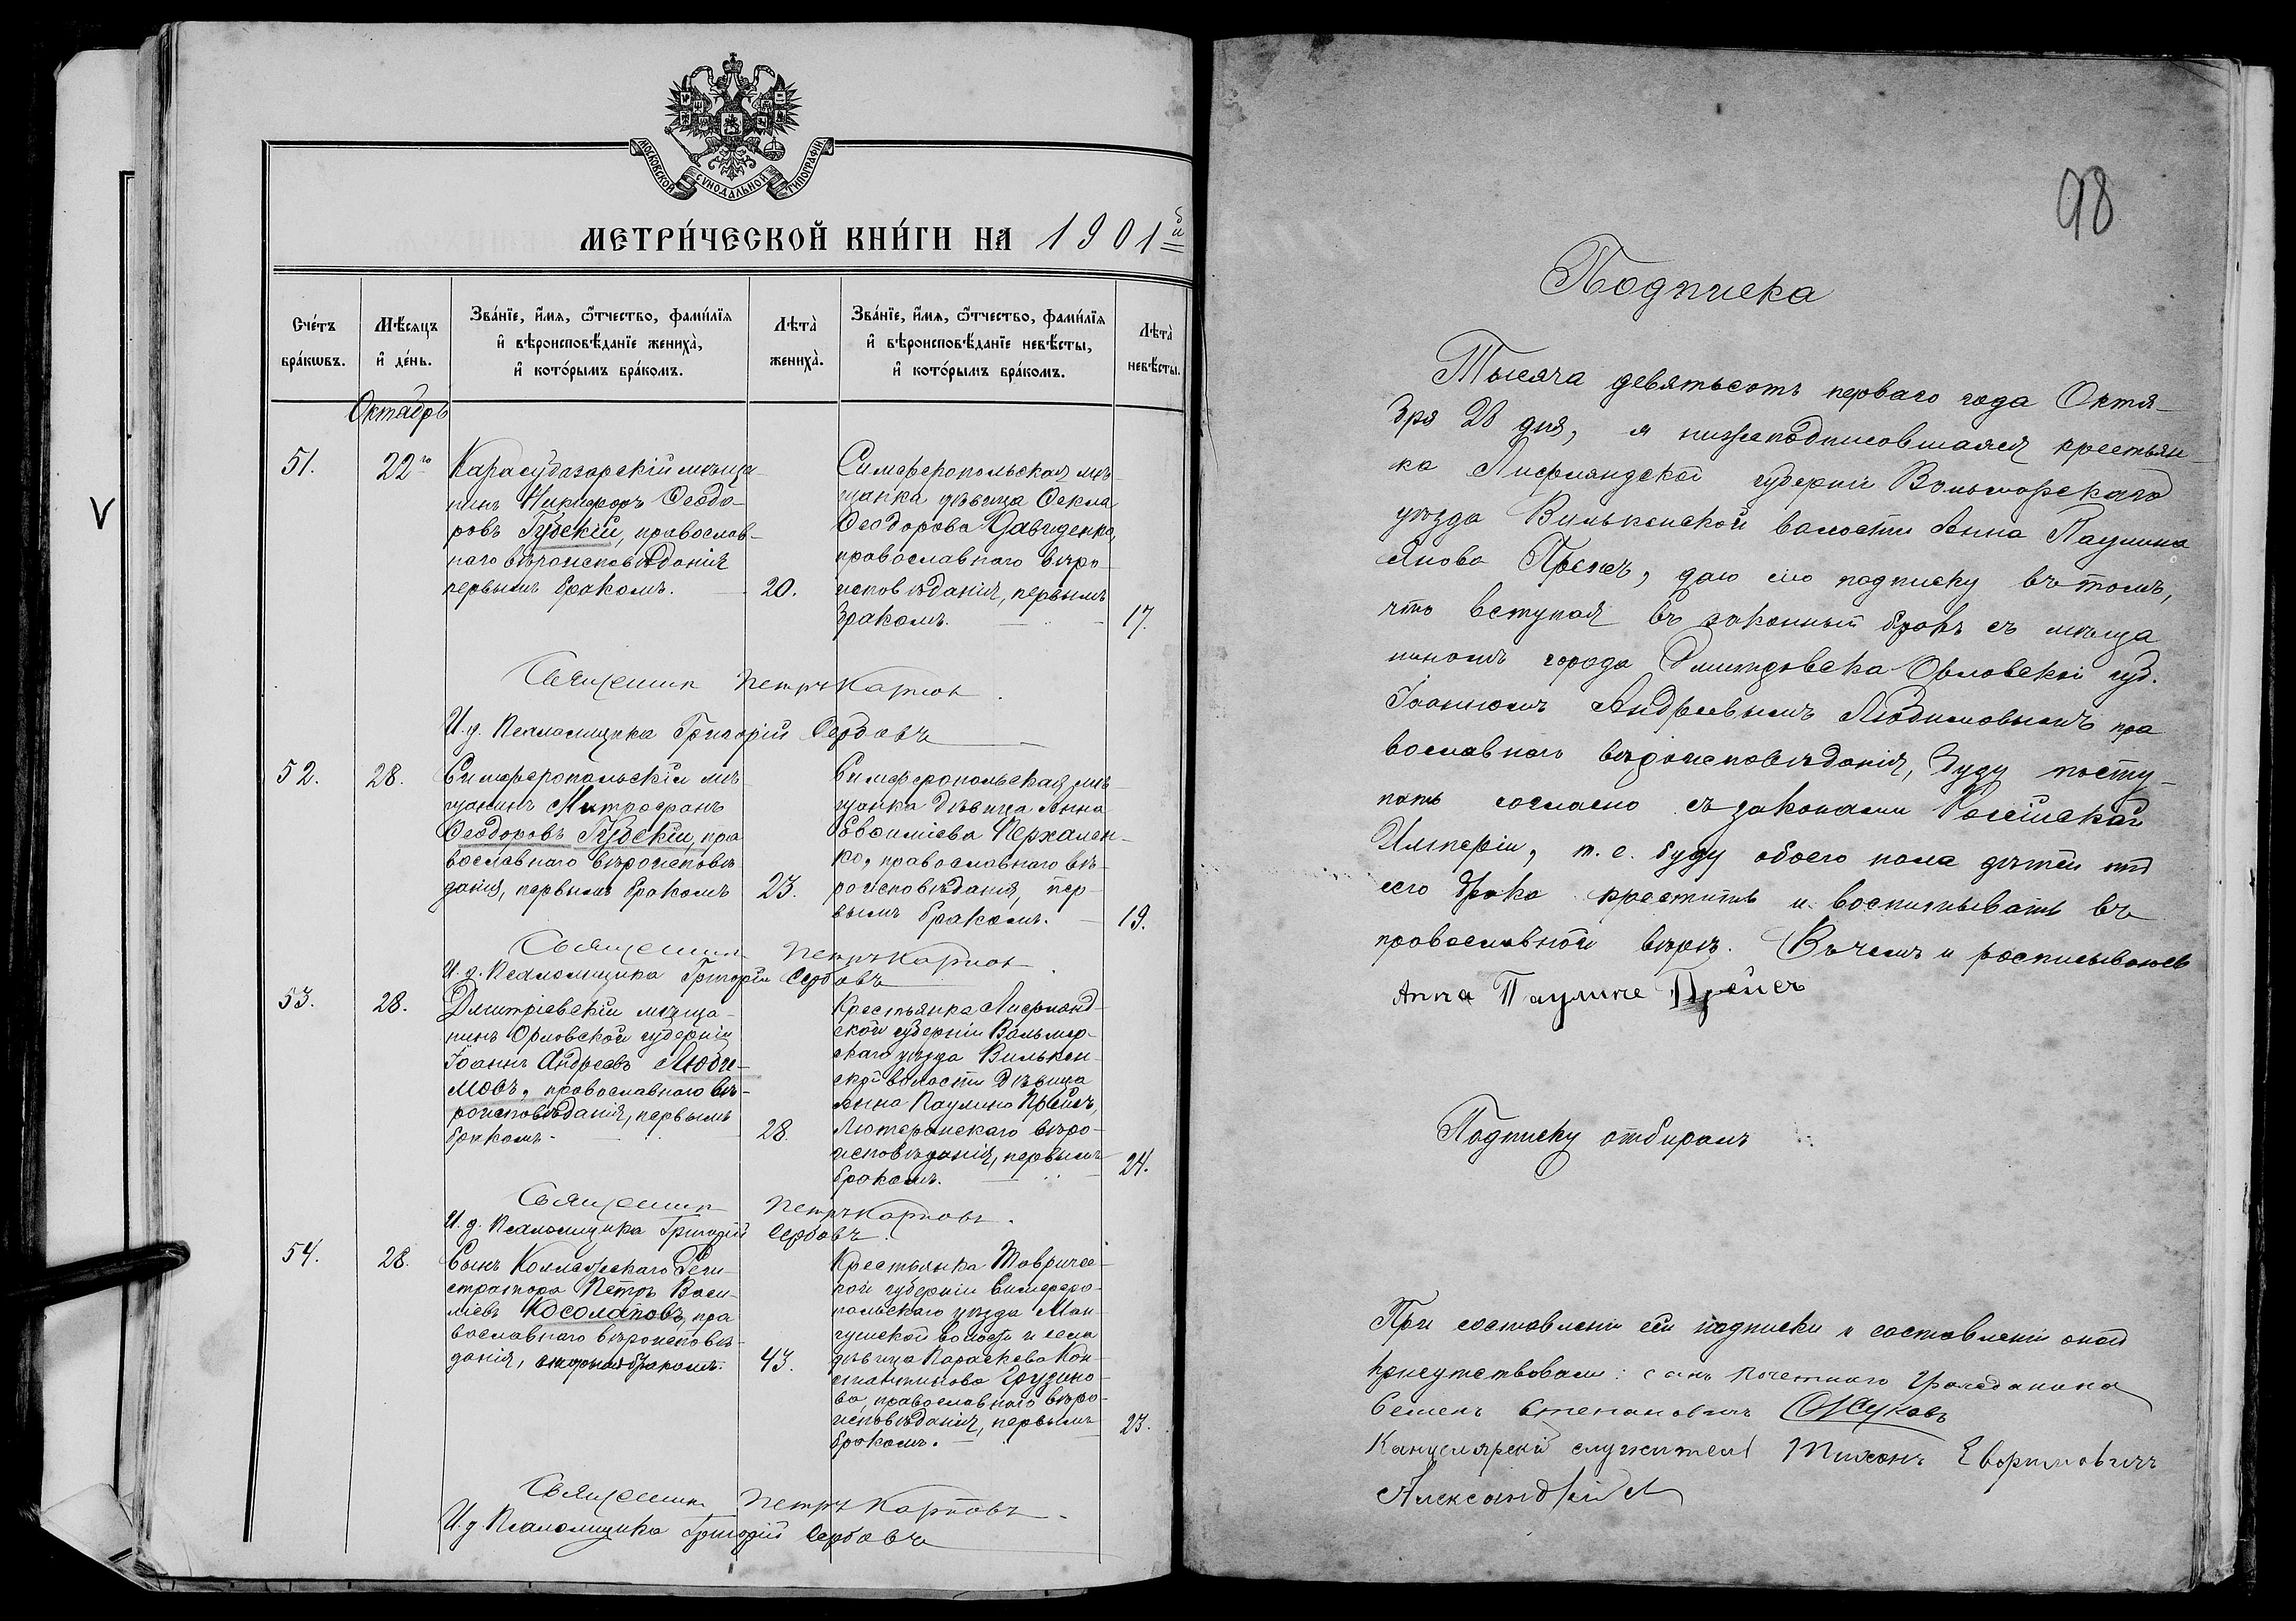 МОСКОВСКОЙ СѴНОДАЛЬНОЙ ТИПОГРАФІИ
МЕТРИ́ЧЕСКОЙ КНИ́ГИ НА 1901й
Сче́тъ бра́кѡвъ.
Мѣ́сяцъ и҆ де́нь.
Зва́нїе, и҆́мѧ, ѻ҆́тчество, фами́лїѧ
и҆ вѣроисповѣ́данїе жениха̀,
и҆ кото́рымъ бра́комъ.
Лѣта̀ жениха̀.
Зва́нїе, и҆́мѧ, ѻ҆́тчество, фами́лїѧ
и҆ вѣроисповѣ́данїе невѣ́сты,
и҆ кото́рымъ бра́комъ.
Лѣта̀ невѣ́сты.
Октябрь
51.
22го
Карасубазарскій мѣща-
нинъ Никифоръ Ѳеодо-
ровъ Губскій, православ-
наго вѣроисповѣданія
первымъ бракомъ.
20.
Симферопольская мѣ-
щанка дѣвица Ѳекла
Ѳеодорова Давиденко,
православнаго вѣро-
исповѣданія, первымъ
бракомъ.
17.
Священник Петръ Карпов
И. д. Псаломщика Григорій Сербовъ
52.
28.
Симферопольскій мѣ
щанинъ Митрофанъ
Ѳеодоровъ Губскій, пра
вославнаго вѣроисповѣ-
данія, первымъ бракомъ
23.
Симферопольская мѣ-
щанка дѣвица Анна
Евѳиміева Перхален-
ко, православнаго вѣ-
роисповѣданія, пер-
вымъ бракомъ.
19.
Священник Петръ Карпов
И. д. Псаломщика Григорій Сербовъ
53.
28.
Дмитріевскій мѣща-
нинъ Орловской губерніи
Іоаннъ Андреевъ Люби-
мовъ, православнаго вѣ-
роисповѣданія, первымъ
бракомъ.
28.
Крестьянка Лифлянд-
ской губерніи Вольмар-
скаго уѣзда Вилькен-
ской волости дѣвица
Анна Паулина Прейсъ,
Лютеранскаго вѣро-
исповѣданія, первымъ
бракомъ.
24.
Священник Петръ Карповъ.
И. д. Псаломщика Григорій Сербовъ.
54.
28.
Сынъ Коллежскаго Реги-
стратора Петръ Васи-
льевъ Косолаповъ, пра
вославнаго вѣроисповѣ-
данія, вторымъ бракомъ.
43.
Крестьянка Тавричес-
кой губерніи Симферо-
польскаго уѣзда Ман-
гушской волости и села
дѣвица Параскева Кон-
стантинова Грузино-
ва, православнаго вѣро-
исповѣданія, первымъ
бракомъ.
23.
Священник Петръ Карповъ
И. д. Псаломщика Григорій Сербовъ
98
Подписка
Тысяча девятьсотъ перваго года Октя-
бря 28 дня, я нижеподписовшаяся крестьян-
ка Лифляндской губерніи Вольмарскаго
уѣзда Вилькенской волости Анна Паулина
Янова Прейсъ, даю сію подписку въ томъ,
что вступая въ законный бракъ съ мѣща
ниномъ города Дмитровска Орловской губ.
Іоанномъ Андреевымъ Любимовымъ пра
вославнаго вѣроисповѣданія, буду посту-
пать согласно съ законами Россійской
Имперіи, т. е. буду обоего пола дѣтей отъ
сего брака крестить и воспитывать въ
православной вѣрѣ. Въ чемъ и росписываюсь
Анна Паулине Прейсъ
Подписку отбиралъ
При составленіи сей подписки и составленіи оной
присутствовали: сынъ почетного Гражданина
Семенъ Степановичъ Жуковъ
Канцелярскій служитель Тихонъ